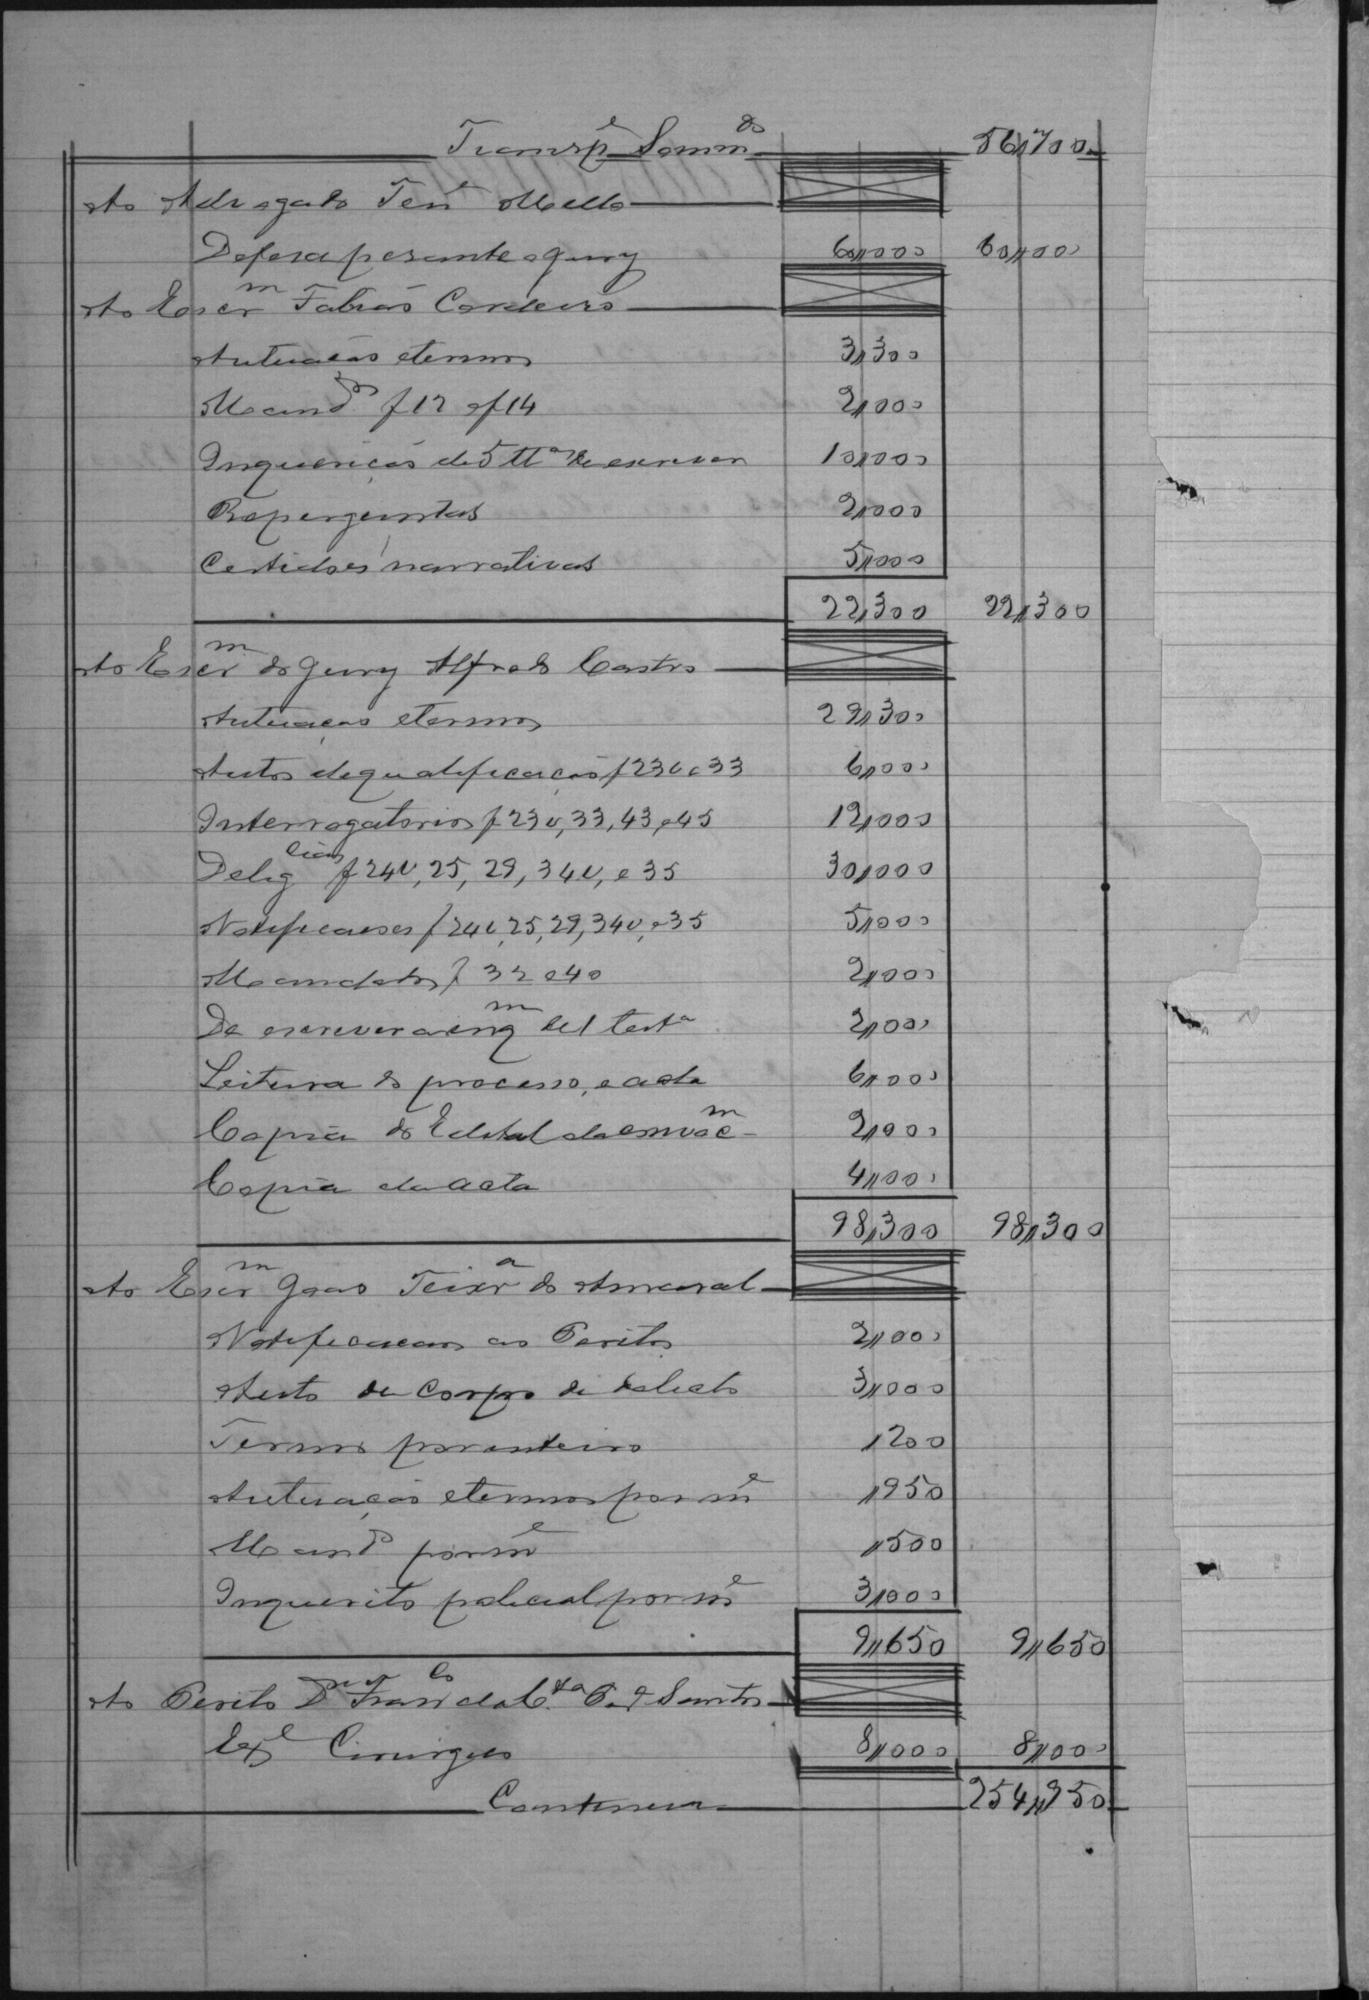 Transpe Sommdo 56,,700
Ao Advogado Tene Mello
Defesa perante o jury 60,,000 60,,000
Ao Escrm Fabião Cordeiro
Autuação e termos 3,,300
Mandos f 12 e f 14 2,,000
Inquerição de 5 ttas de escrever 10,,000
Reperguntas 2,,000
Certidões narrativas 5,,000
22,,300 22,,300
Ao Escrm do jury Alfredo Castro
Autuação e termos 29,,300
Autos de qualificação f 23v e 33 6,,000
Interrogatorios f 23v, 33, 43, e 45 12,,000
Deligcias f 24v, 25, 29, 34v, e 35 30,,000
Notificações f 24v, 25, 29, 34v, e 35 5,,000
Mandatos f 32 e 40 2,,000
De escrever a inqm de 1 testa 2,,000
Leitura do processo, e acta 6,,000
Copia do Edital da convocm 2,,000
Copia da acta 4,,000
98,,300 98,,300
Ao Escrm João Teixra do Amaral
Notificacões aos Peritos 2,,000
Auto de corpo de delicto 3,,000
Termos por inteiro 1200
Autuação e termos por me ,,950
Mando por me ,,500
Inquerito policial por me 3,,000
9,,650 9,,650
Ao Perito Franco da Cta Santos
Cirurgico 8,,000 8,,000
Continua 254,,950